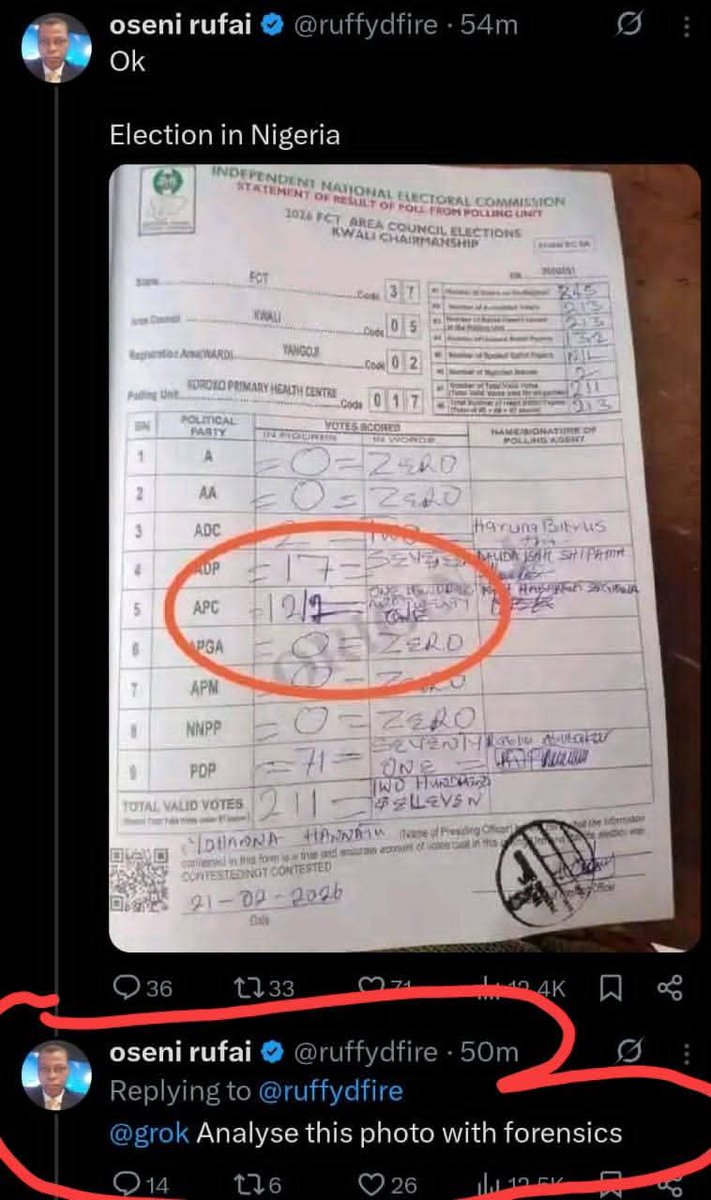 oseni rufai @ruffydfire · 54m
Ok
Election in Nigeria
INDEPENDENT NATIONAL ELECTORAL COMMISSION
STATEMENT OF RESULT OF POLL FROM POLLING UNIT
2026 FCT AREA COUNCIL ELECTIONS
KWALI CHAIRMANSHIP
State FCT Code 3 7
Area Council KWALI Code 0 5
Registration Area(WARD) YANGOJI Code 0 2
Polling Unit KOROKO PRIMARY HEALTH CENTRE Code 0 1 7
213
213
132
2
211
213
SN POLITICAL PARTY VOTES SCORED NAME/SIGNATURE OF POLLING AGENT
IN FIGURES IN WORDS
1 A = 0 = ZERO
2 AA = 0 = ZERO
3 ADC 2 TWO Haruna Bitrus
4 ADP = 17 =
5 APC ONE
6 APGA = 0 = ZERO
7 APM 0 ZERO
8 NNPP = 0 = ZERO
9 PDP = 71 = SEVENTY ONE
TOTAL VALID VOTES 211 TWO HUNDRED
YOHANNA (Name of Presiding Officer) the information
contained in this form is a true and accurate account of votes cast in this
CONTESTED/NOT CONTESTED
21-02-2026
Date
36 33 71 12.4K
oseni rufai @ruffydfire · 50m
Replying to @ruffydfire
@grok Analyse this photo with forensics
14 6 26 12.5K